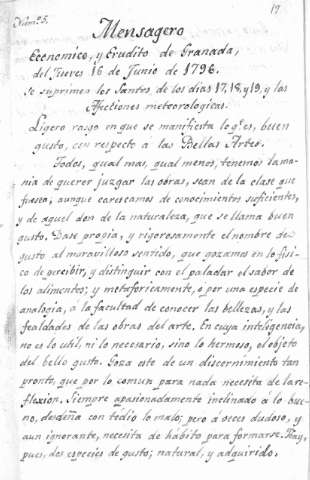 17
Núm.º 5.
Mensagero
Economico, y Erudito de Granada,
del Jueves 16 de Junio de 1796.
Se suprimen los Santos de los dias 17, 18, y 19, y las
Afecciones meteorologicas.
Ligero rasgo en que se manifiesta lo q.e es, buen
gusto, con respecto à las Bellas Artes.
Todos, qual mas, qual menos, tenemos la ma-
nia de querer juzgar las obras, sean de la clase que
fuesen, aunque carescamos de conocimientos suficientes,
y de aquel don de la naturaleza, que se llama buen
gusto. Dase propia, y rigorosamente el nombre de
gusto al maravilloso sentido, que gozamos en lo fisi-
co de percibir, y distinguir con el paladar el sabor de
los alimentos; y metaforicamente, ó por una especie de
analogia, à la facultad de conocer las bellezas, y las
fealdades de las obras del arte. En cuya inteligencia,
no es lo util, ni lo necesario, sino lo hermoso, el objeto
del bello gusto. Goza este de un discernimiento tan
pronto, que por lo comun para nada necesita de la re-
flexion. Siempre apasionadamente inclinado à lo bue-
no, desdeña con tedio lo malo; pero à veces dudoso, y
aun ignorante, necesita de hábito para formarse. Hay,
pues, dos especies de gusto; natural, y adquirido.